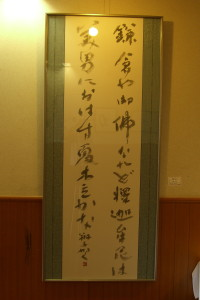 鎌倉や御佛なれど釋迦牟尼は
美男におはす夏木立かな